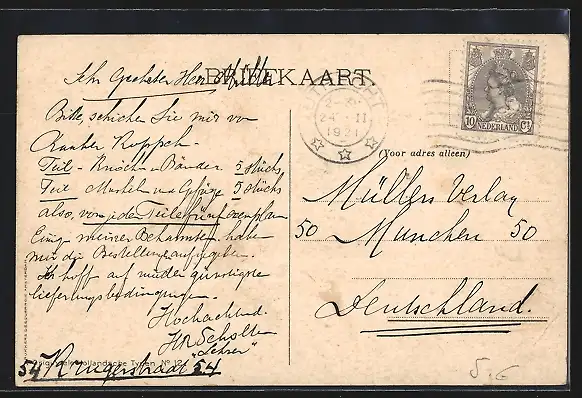 BRIEFKAART
Sehr Geehrter Herr Müller
Bitte, schicken Sie mir von
Rauber Kopsch
Teil - Knochen Bänder 5 stücks
Teil Muskel und Gefäße 5 stücks
also, von jeder Teile fünf exemplare
Einige meiner Bekannten haben
mir die Bestellung aufgegeben.
Ich hoff auf günstigste
lieferungsbedingungen.
Hochachtend.
HR Scholten
"Lehrer"
54 Kringerstraat 54
Hollandsche Typen. No 12
24 II
1921
10 Ct
NEDERLAND
(Voor adres alleen)
Müllers Verlag
50 Munchen 50
Deutschland.
5,-€